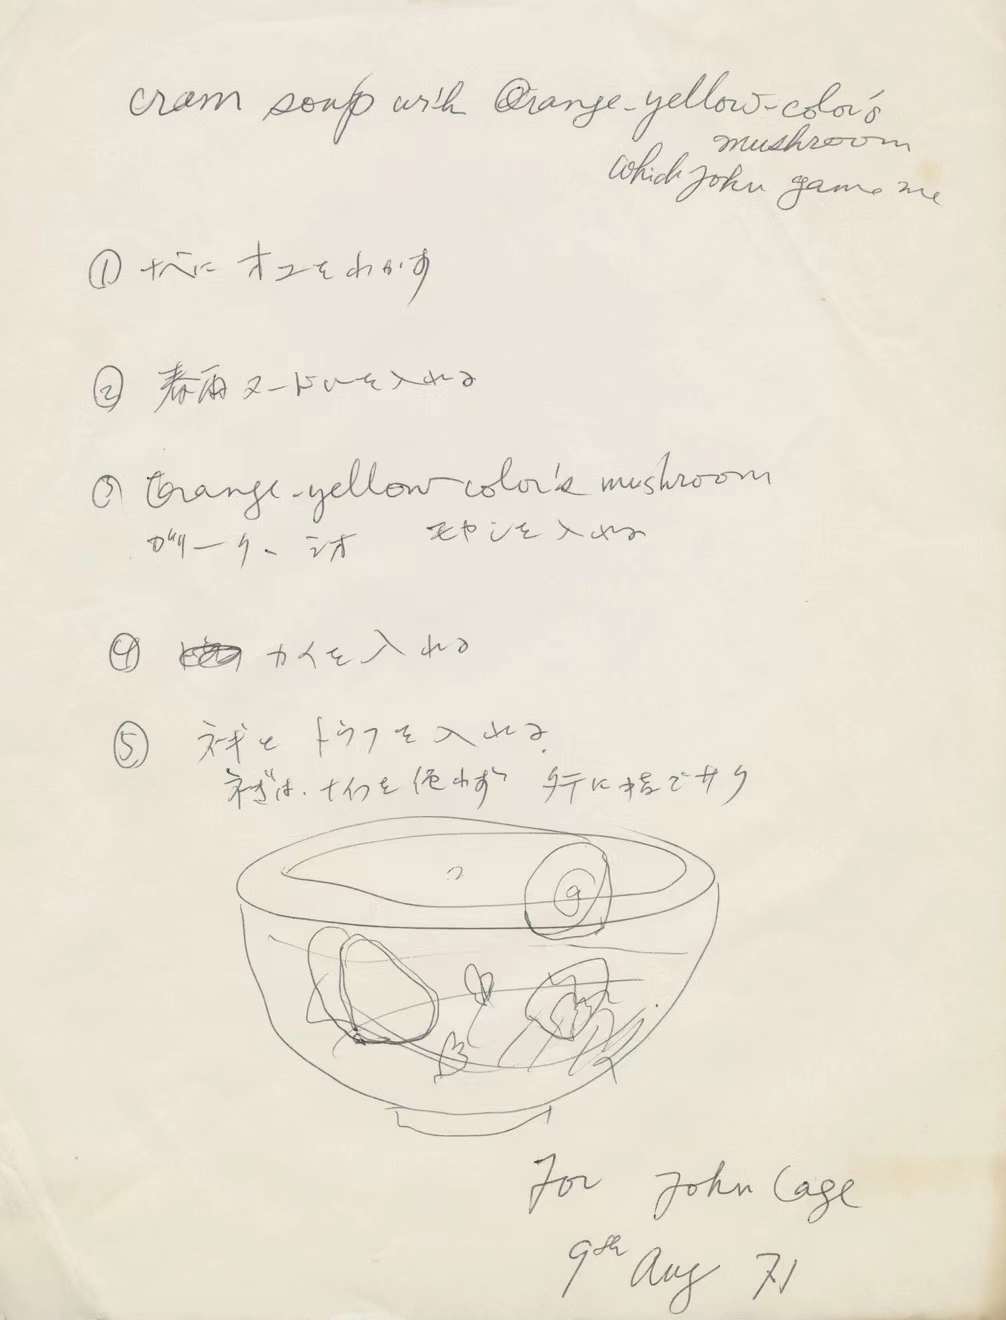 cram soup with Orange-yellow-color's
mushroom
which John game me
① ナベに オユをわかす
② 春雨ヌードルを入れる
③ Orange-yellow-color's mushroom
ガリーク、シオ モヤシを入れる
④ カイを入れる
⑤ ネギと トウフを入れる.
ネギは、ナイフを使わず タテに指でサク
For John Cage
9th Aug 71